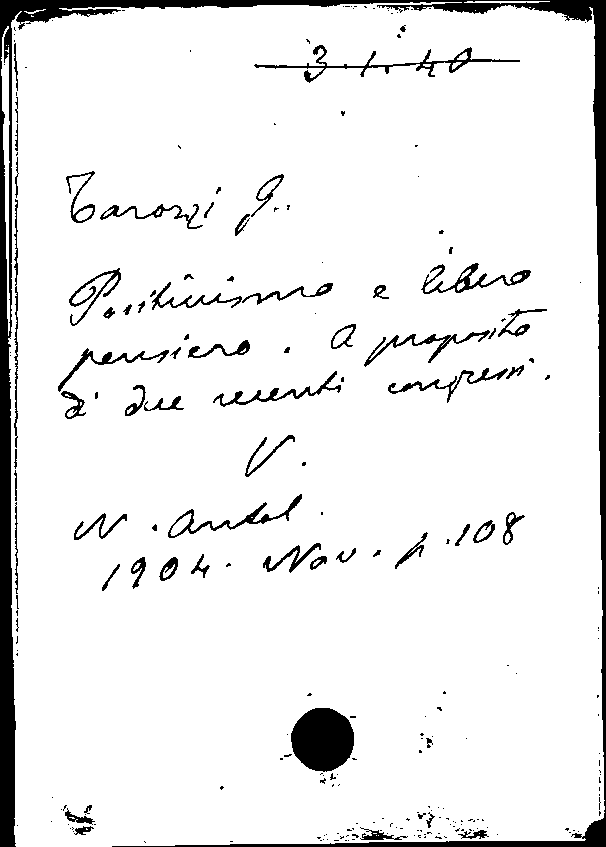 3.1.40
Tarozzi G..
Positivismo e libero
pensiero. A proposito
di due recenti congressi.
V.
N. Antol.
1904. Nov. p. 108